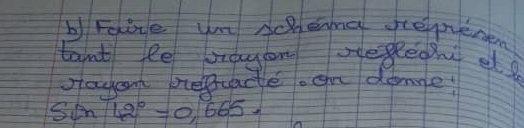 b) Faire un schéma représen
tant le rayon réfléchi et le
rayon réfracté. on donne:
Sin 42° = 0,665.